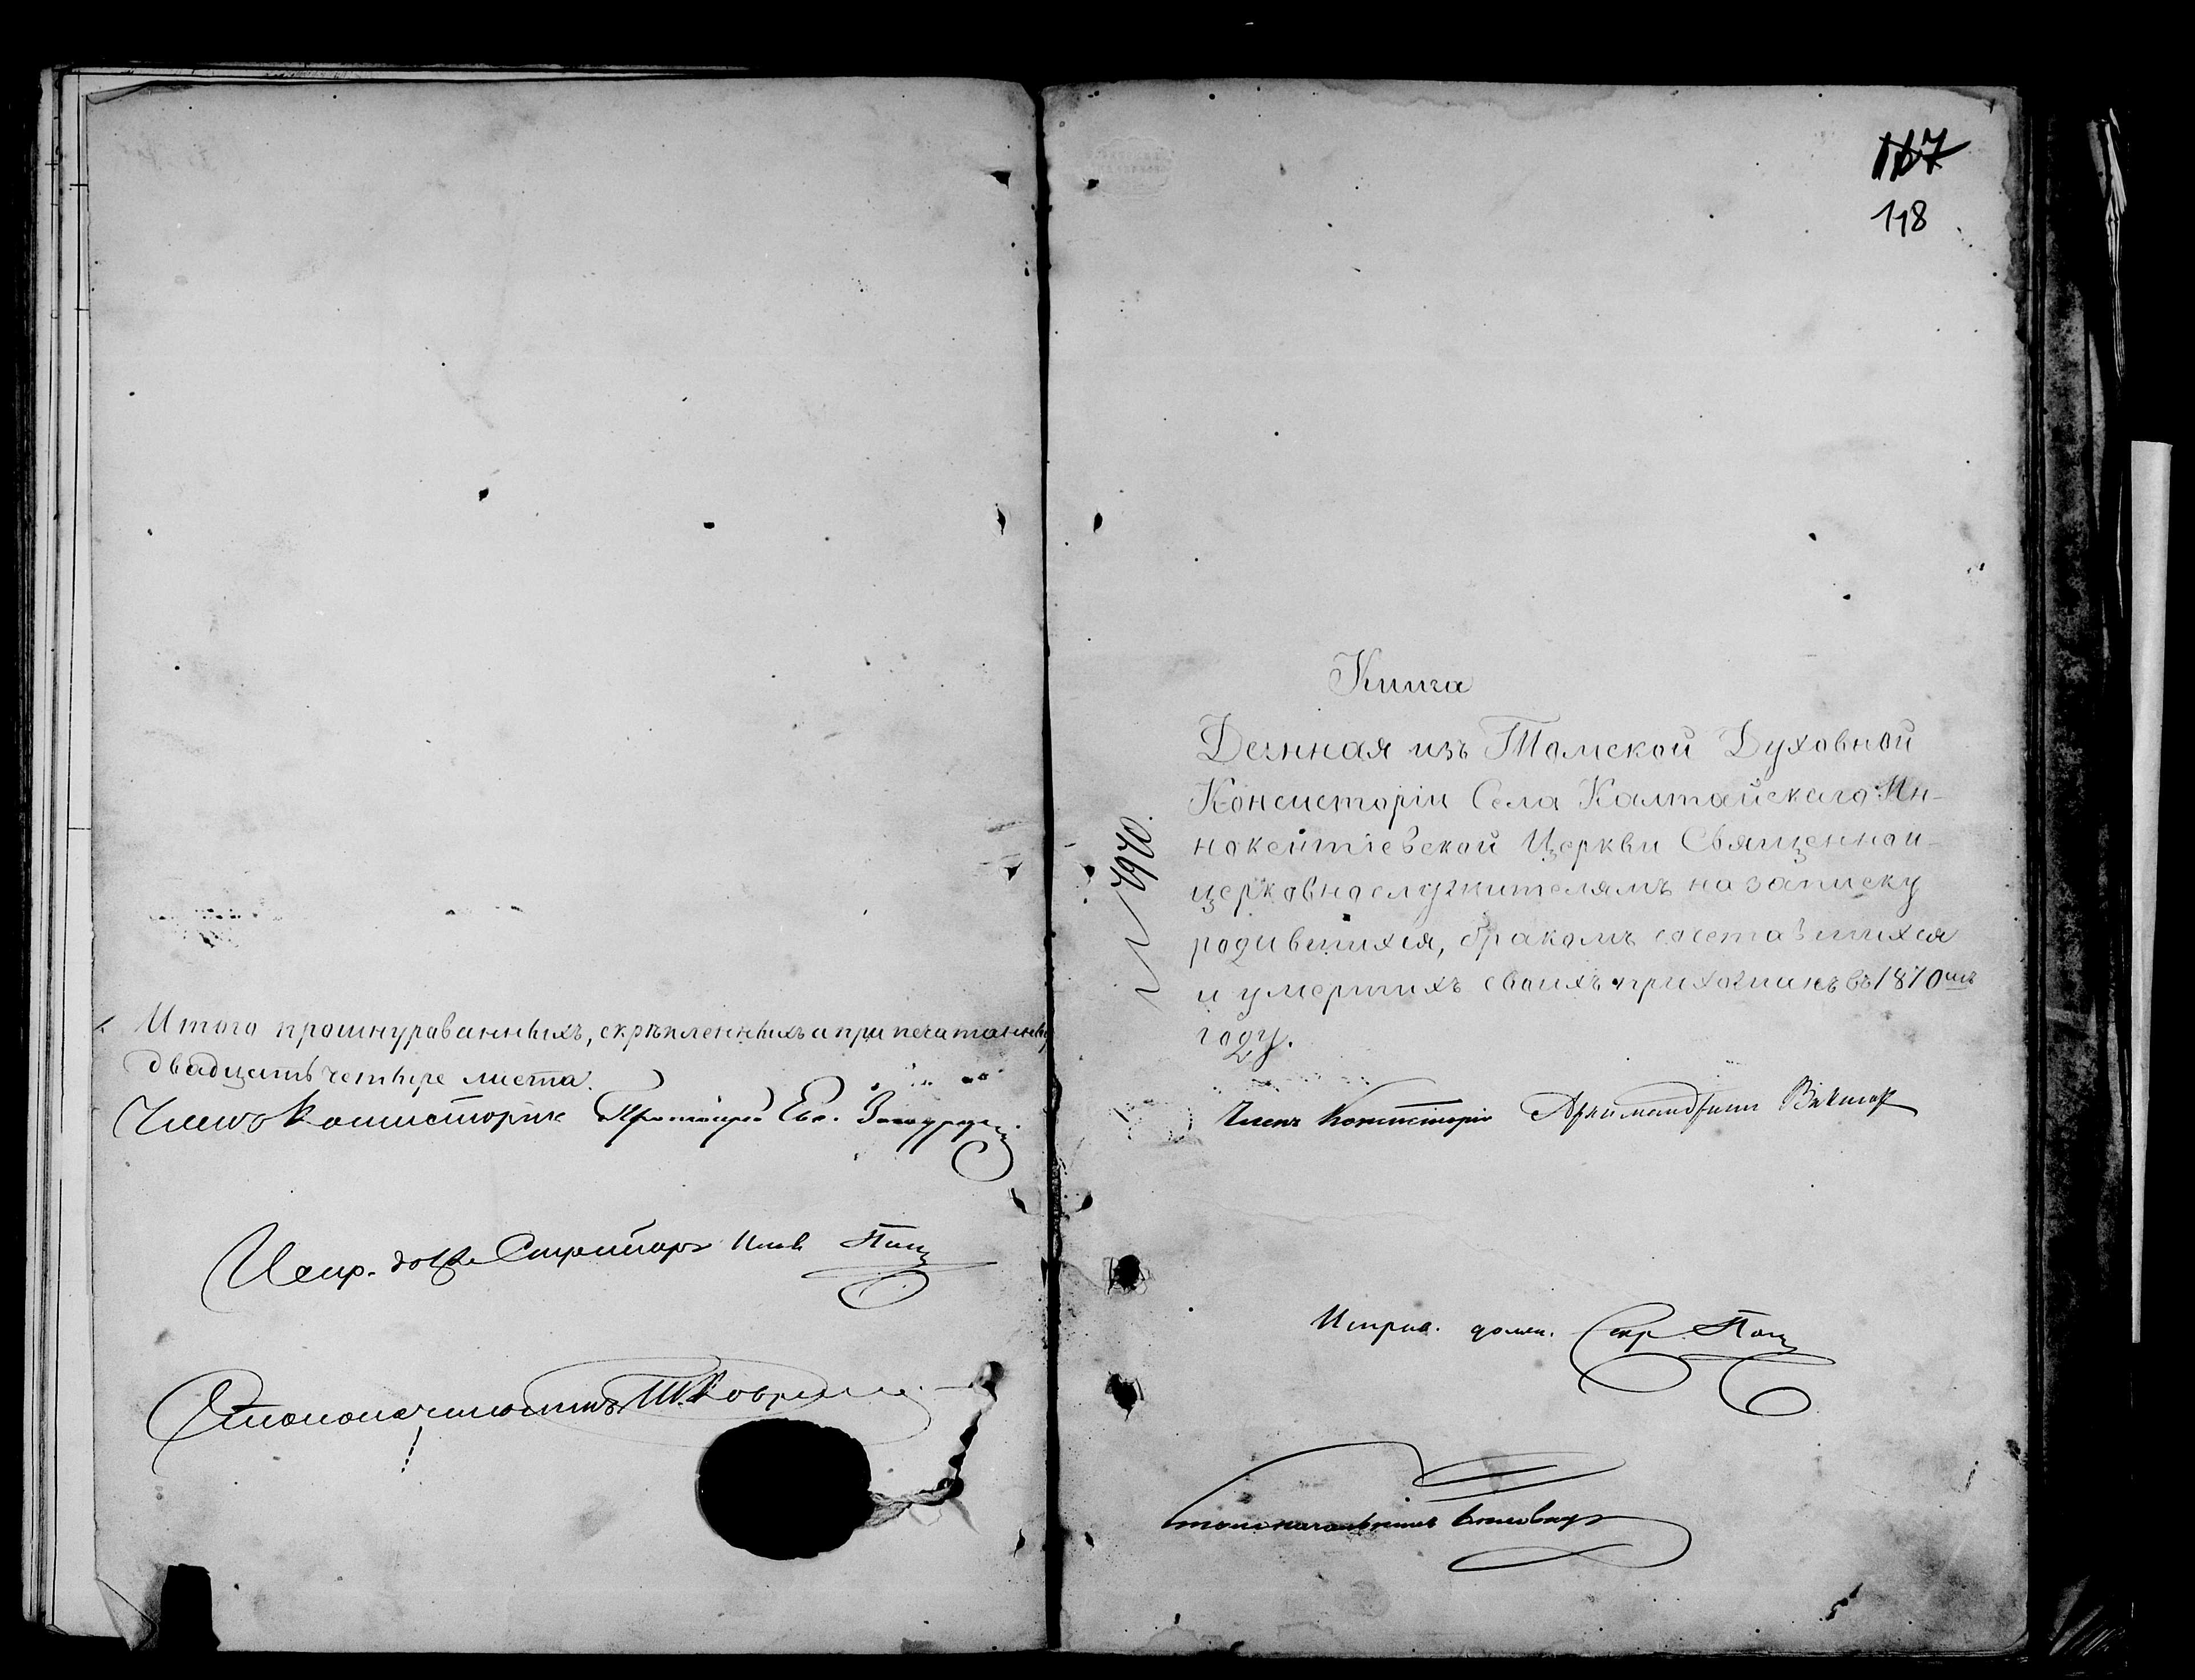 Итого прошнурованныхъ, скрѣпленныхъ и припечатанныхъ
двадцать четыре листа.
Членъ Консисторіи Протоіерей Евг.
Испр. долж. Секретаря
Столоначальникъ
117
118
Книга
Данная изъ Томской Духовной
Консисторіи Села Калтайскаго Ин-
нокентіевской Церкви Священно и-
церковнослужителямъ на записку
родившихся, бракомъ сочетавшихся
и умершихъ своихъ прихожанъ въ 1870мъ
году.
Членъ Консисторіи Архимандритъ Викторъ
Исправ. долж. Секр.
Столоначальникъ